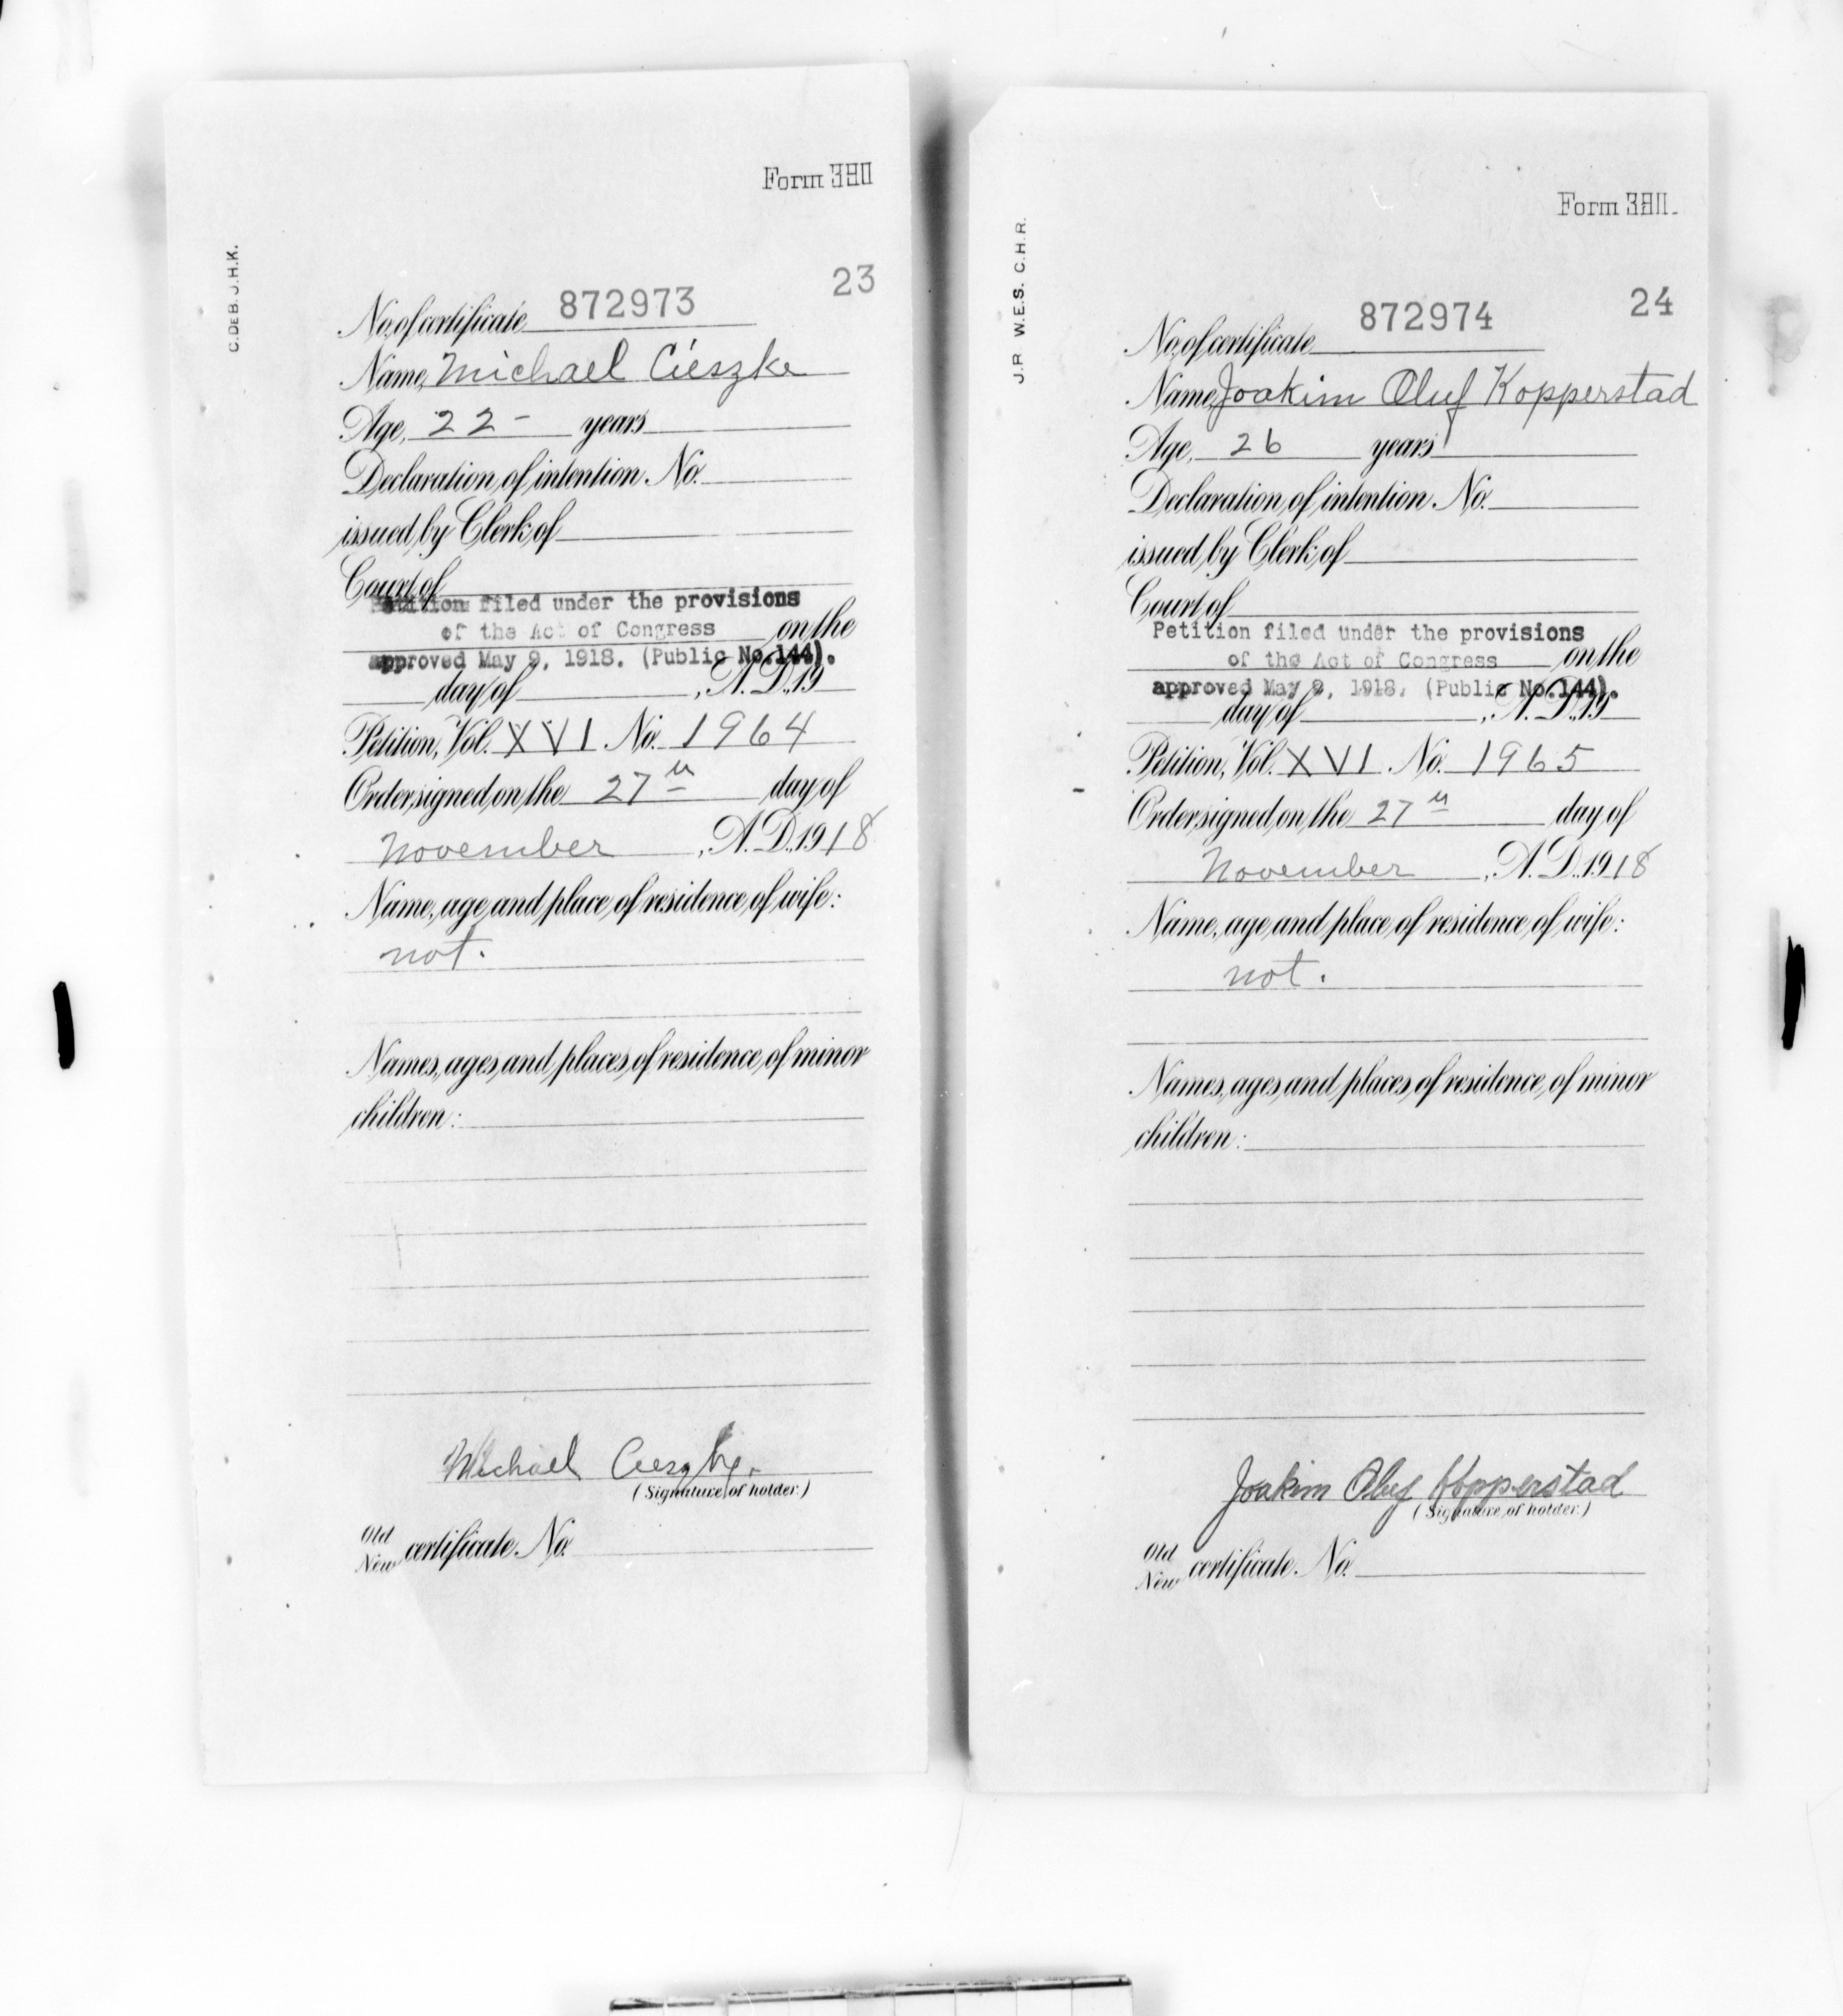 C.DE B. J.H.K.
Form
23
No. of certificate 872973
Name, Michael Cieszke
Age, 22 - years
Declaration of intention No.
issued by Clerk of
Court of
Petition filed under the provisions
of the Act of Congress on the
approved May 9, 1918. (Public No. 144).
day of , A. D. 19
Petition, Vol. XVI No. 1964
Order signed on the 27th day of
November , A. D. 1918
Name, age and place of residence of wife:
not.
Names, ages and places of residence of minor
children:
Michael
(Signature of holder.)
Old
New certificate No.
J.P. W.E.S. C.H.R.
Form
24
No. of certificate 872974
Name, Joakim Oluf Kopperstad
Age, 26 years
Declaration of intention No.
issued by Clerk of
Court of
Petition filed under the provisions
of the Act of Congress on the
approved May 9, 1918. (Public No. 144).
day of , A. D. 19
Petition, Vol. XVI No. 1965
Order signed on the 27th day of
November , A. D. 1918
Name, age and place of residence of wife:
not.
Names, ages and places of residence of minor
children:
Joakim Oluf Kopperstad
(Signature of holder.)
Old
New certificate No.